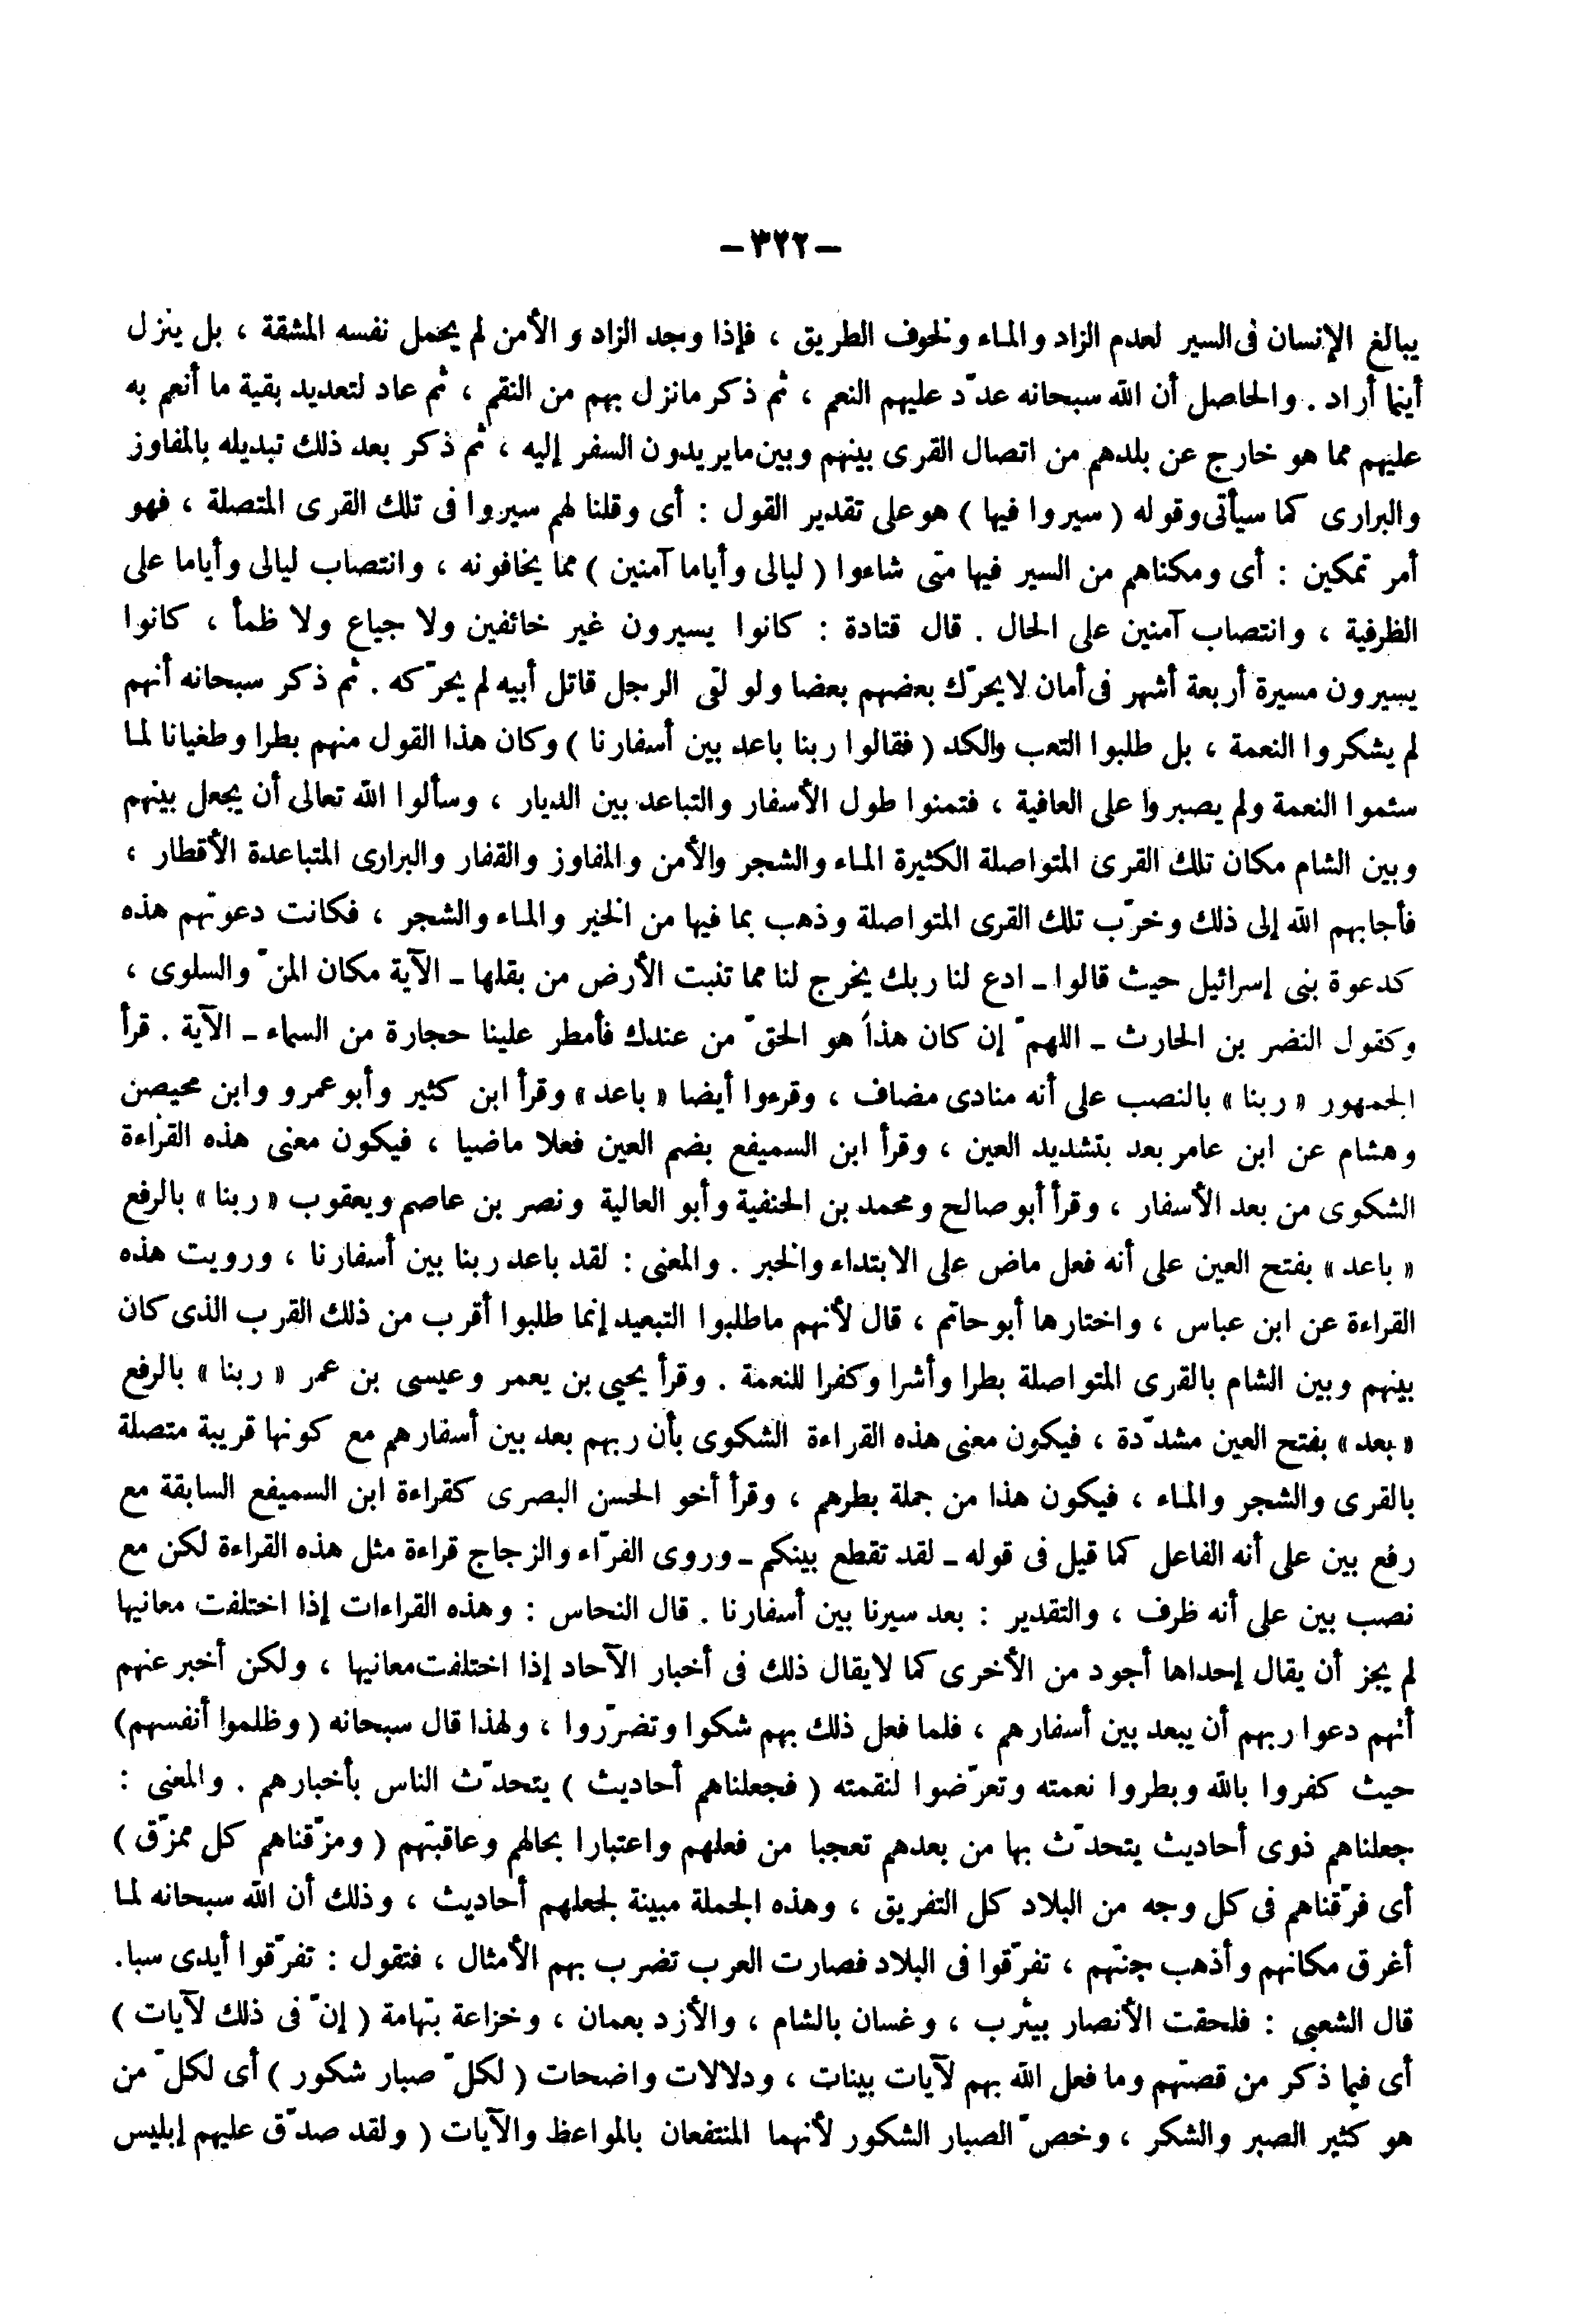 -٣٢٢-
يبالغ الإنسان فى السير لعدم الزاد والماء ولخوف الطريق ، فإذا وجد الزاد و الأمن لم يحمل نفسه المشقة ، بل ينزل
أينما أراد . والحاصل أن الله سبحانه عدّد عليهم النعم ، ثم ذكر مانزل بهم من النقم ، ثم عاد لتعديد بقية ما أنعم به
عليهم مما هو خارج عن بلدهم من اتصال القرى بينهم وبين مايريدون السفر إليه ، ثم ذكر بعد ذلك تبديله بالمفاوز
والبرارى كما سيأتى وقوله ( سيروا فيها ) هو على تقدير القول : أى وقلنا لهم سيروا فى تلك القرى المتصلة ، فهو
أمر تمكين : أى ومكناهم من السير فيها متى شاءوا ( ليالى وأياما آمنين ) مما يخافونه ، وانتصاب ليالى وأياما على
الظرفية ، وانتصاب آمنين على الحال . قال قتادة : كانوا يسيرون غير خائفين ولا جياع ولا ظمأ ، كانوا
يسيرون مسيرة أربعة أشهر فى أمان لايحرّك بعضهم بعضا ولو لقى الرجل قاتل أبيه لم يحرّكه . ثم ذكر سبحانه أنهم
لم يشكروا النعمة ، بل طلبوا التعب والكد ( فقالوا ربنا باعد بين أسفارنا ) وكان هذا القول منهم بطرا وطغيانا لما
سئموا النعمة ولم يصبروا على العافية ، فتمنوا طول الأسفار والتباعد بين الديار ، وسألوا الله تعالى أن يجعل بينهم
وبين الشام مكان تلك القرى المتواصلة الكثيرة الماء والشجر والأمن والمفاوز والقفار والبرارى المتباعدة الأقطار ،
فأجابهم الله إلى ذلك وخرّب تلك القرى المتواصلة وذهب بما فيها من الخير والماء والشجر ، فكانت دعوتهم هذه
كدعوة بنى إسرائيل حيث قالوا - ادع لنا ربك يخرج لنا مما تنبت الأرض من بقلها - الآية مكان المنّ والسلوى ،
وكقول النضر بن الحارث - اللهمّ إن كان هذا هو الحقّ من عندك فأمطر علينا حجارة من السماء - الآية . قرأ
الجمهور « ربنا » بالنصب على أنه منادى مضاف ، وقرءوا أيضا « باعد » وقرأ ابن كثير وأبو عمرو وابن محيصن
وهشام عن ابن عامر بعد بتشديد العين ، وقرأ ابن السميفع بضم العين فعلا ماضيا ، فيكون معنى هذه القراءة
الشكوى من بعد الأسفار ، وقرأ أبو صالح ومحمد بن الحنفية وأبو العالية ونصر بن عاصم ويعقوب « ربنا » بالرفع
« باعد » بفتح العين على أنه فعل ماض على الابتداء والخبر . والمعنى : لقد باعد ربنا بين أسفارنا ، ورويت هذه
القراءة عن ابن عباس ، واختارها أبو حاتم ، قال لأنهم ماطلبوا التبعيد إنما طلبوا أقرب من ذلك القرب الذى كان
بينهم وبين الشام بالقرى المتواصلة بطرا وأشرا وكفرا للنعمة . وقرأ يحيى بن يعمر وعيسى بن عمر « ربنا » بالرفع
« بعد » بفتح العين مشدّدة ، فيكون معنى هذه القراءة الشكوى بأن ربهم بعد بين أسفارهم مع كونها قريبة متصلة
بالقرى والشجر والماء ، فيكون هذا من جملة بطرهم ، وقرأ أخو الحسن البصرى كقراءة ابن السميفع السابقة مع
رفع بين على أنه الفاعل كما قيل فى قوله - لقد تقطع بينكم - وروى الفرّاء والزجاج قراءة مثل هذه القراءة لكن مع
نصب بين على أنه ظرف ، والتقدير : بعد سيرنا بين أسفارنا . قال النحاس : وهذه القراءات إذا اختلفت معانيها
لم يجز أن يقال إحداها أجود من الأخرى كما لايقال ذلك فى أخبار الآحاد إذا اختلفت معانيها ، ولكن أخبر عنهم
أنهم دعوا ربهم أن يبعد بين أسفارهم ، فلما فعل ذلك بهم شكوا وتضرّروا ، ولهذا قال سبحانه ( وظلموا أنفسهم)
حيث كفروا بالله وبطروا نعمته وتعرّضوا لنقمته ( فجعلناهم أحاديث ) يتحدّث الناس بأخبارهم . والمعنى :
جعلناهم ذوى أحاديث يتحدّث بها من بعدهم تعجبا من فعلهم واعتبارا بحالهم وعاقبتهم ( ومزّقناهم كل ممزّق )
أى فرّقناهم فى كل وجه من البلاد كل التفريق ، وهذه الجملة مبينة لجعلهم أحاديث ، وذلك أن الله سبحانه لما
أغرق مكانهم وأذهب جنتهم ، تفرّقوا فى البلاد فصارت العرب تضرب بهم الأمثال ، فتقول : تفرّقوا أيدى سبا.
قال الشعبى : فلحقت الأنصار بيثرب ، وغسان بالشام ، والأزد بعمان ، وخزاعة بتهامة ( إنّ فى ذلك لآيات )
أى فيما ذكر من قصتهم وما فعل الله بهم لآيات بينات ، ودلالات واضحات ( لكلّ صبار شكور ) أى لكلّ من
هو كثير الصبر والشكر ، وخصّ الصبار الشكور لأنهما المنتفعان بالمواعظ والآيات ( ولقد صدّق عليهم إبليس